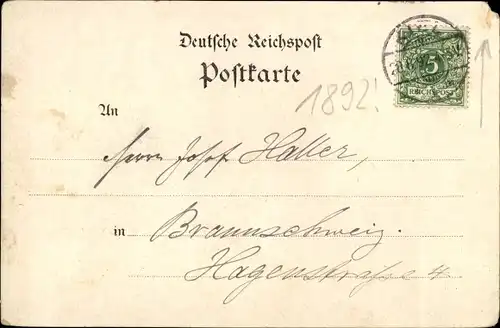 Deutsche Reichspost
Postkarte
1892!
5
REICHSPOST
An
Herrn Josef Haller,
in Braunschweig.
Hagenstrasse 4